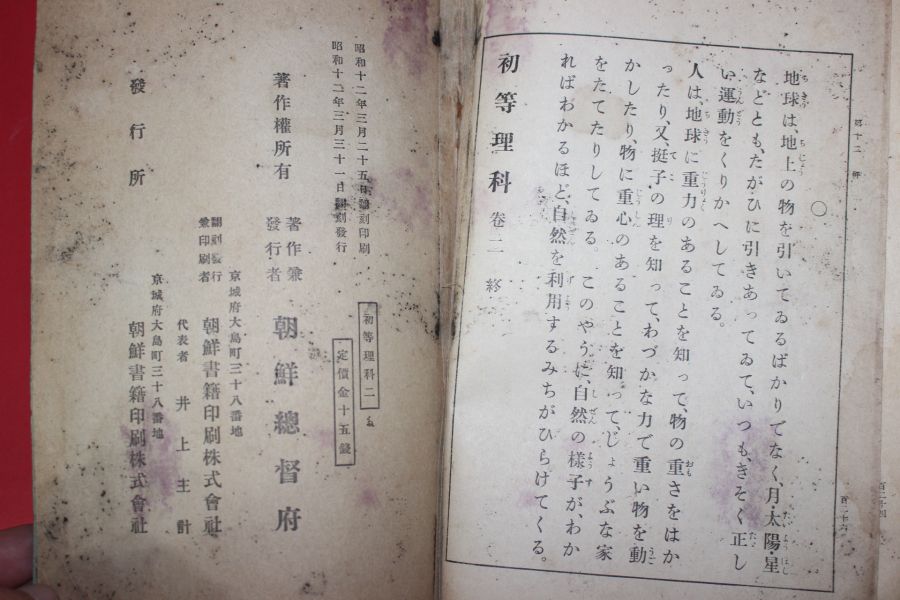 第十二 課
百二十六
百二十四
〇
地球は、地上の物を引いてゐるばかりでなく、月・太陽・星
などとも、たがひに引きあってゐて、いつも、きそく正し
い運動をくりかへしてゐる。
人は、地球に重力のあることを知って、物の重さをはか
ったり、又、挺子の理を知って、わづかな力で重い物を動
かしたり、物に重心のあることを知って、じょうぶな家
をたてたりしてゐる。このやうに、自然の様子が、わか
ればわかるほど、自然を利用するみちがひらけてくる。
初等理科 巻二 終
昭和十二年三月二十五日飜刻印刷
昭和十二年三月三十一日飜刻發行
初等理科二
定價金十五錢
著作權所有
著作兼
發行者 朝鮮總督府
京城府大島町三十八番地
飜刻發行
兼印刷者 朝鮮書籍印刷株式會社
代表者 井上主計
京城府大島町三十八番地
發行所 朝鮮書籍印刷株式會社